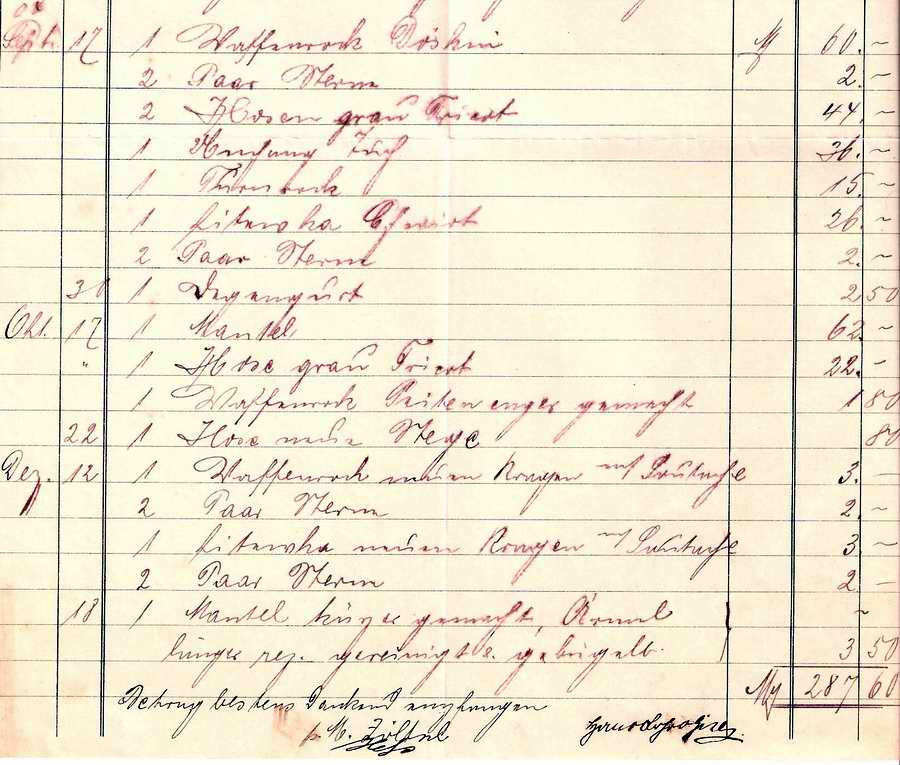 Sept. 17 1 Waffenrock Döskin M 60. ~
2 Paar Sterne 2. ~
2 Hosen grau Tricot 44. ~
1 Tuch 36. ~
1 Turnrock 15. ~
1 Litewka Cheviot 26. ~
2 Paar Sterne 2. ~
30 1 Degengurt 2 50
Okt. 17 1 Mantel 62. ~
" 1 Hose grau Tricot 22. ~
1 Waffenrock Seiten enger gemacht 1 80
22 1 Hose neue Stege 80
Dez. 12 1 Waffenrock neuen Kragen mit Soutache 3. ~
2 Paar Sterne 2. ~
1 Litewka neuen Kragen mit Soutache 3 ~
2 Paar Sterne 2 ~
18 1 Mantel kürzer gemacht, Ärmel ~
länger rep. gereinigt u. gebügelt. 3 50
M 287 60
Betrag bestens dankend empfangen
p. M.